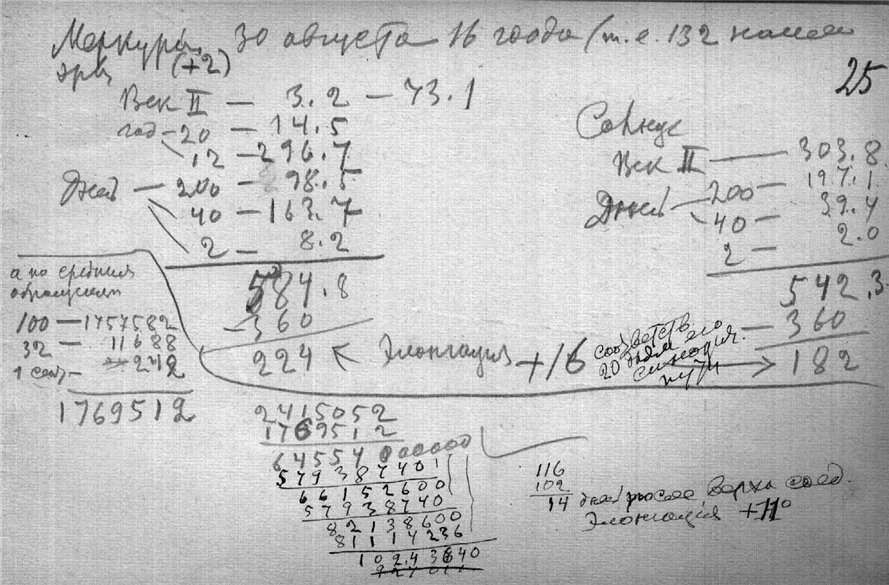 Меркурій 30 августа 16 года (т.е. 132 нашей
эры (+2)
25
Век II — 3.2 — 73.1
год — 20 — 14.5
12 — 296.7
Дней — 200 — 98.5
40 — 163.7
2 — 8.2
584.8
— 360
224 ← Элонгация +16
соответств.
20 дням его
синодич.
пути
Солнце
Век II — 303.8
Дней — 200 — 197.1
40 — 39.4
2 — 2.0
542.3
— 360
182
а по средним
обращениям
100 — 1757582
32 — 11688
1 сент. — 242
1769512
2415052
1769512
645540 000000
579387401
66152600
57938740
82138600
81114236
10243640
116
102
14 дней после верхн соед.
Элонгация +11°